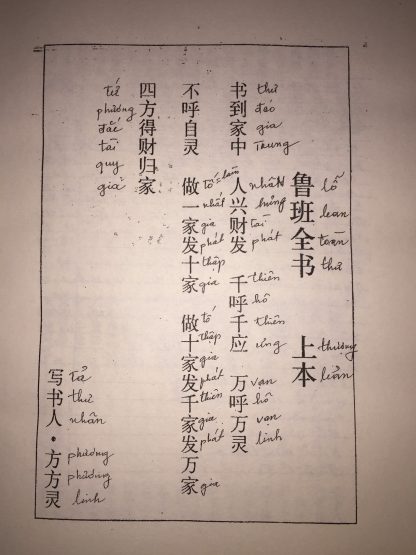 鲁班全书 上本
lỗ ban toàn thư thượng bản
书到家中 人兴财发 千呼千应 万呼万灵
thư đáo gia trung nhân hưng tài phát thiên hô thiên ứng vạn hô vạn linh
不呼自灵 做一家发十家 做十家发千家发万家
tố-làm nhất gia phát thập gia tố thập gia phát thiên gia phát gia
四方得财归家
tứ phương đắc tài quy gia
写书人·方方灵
tả thư nhân phương phương linh